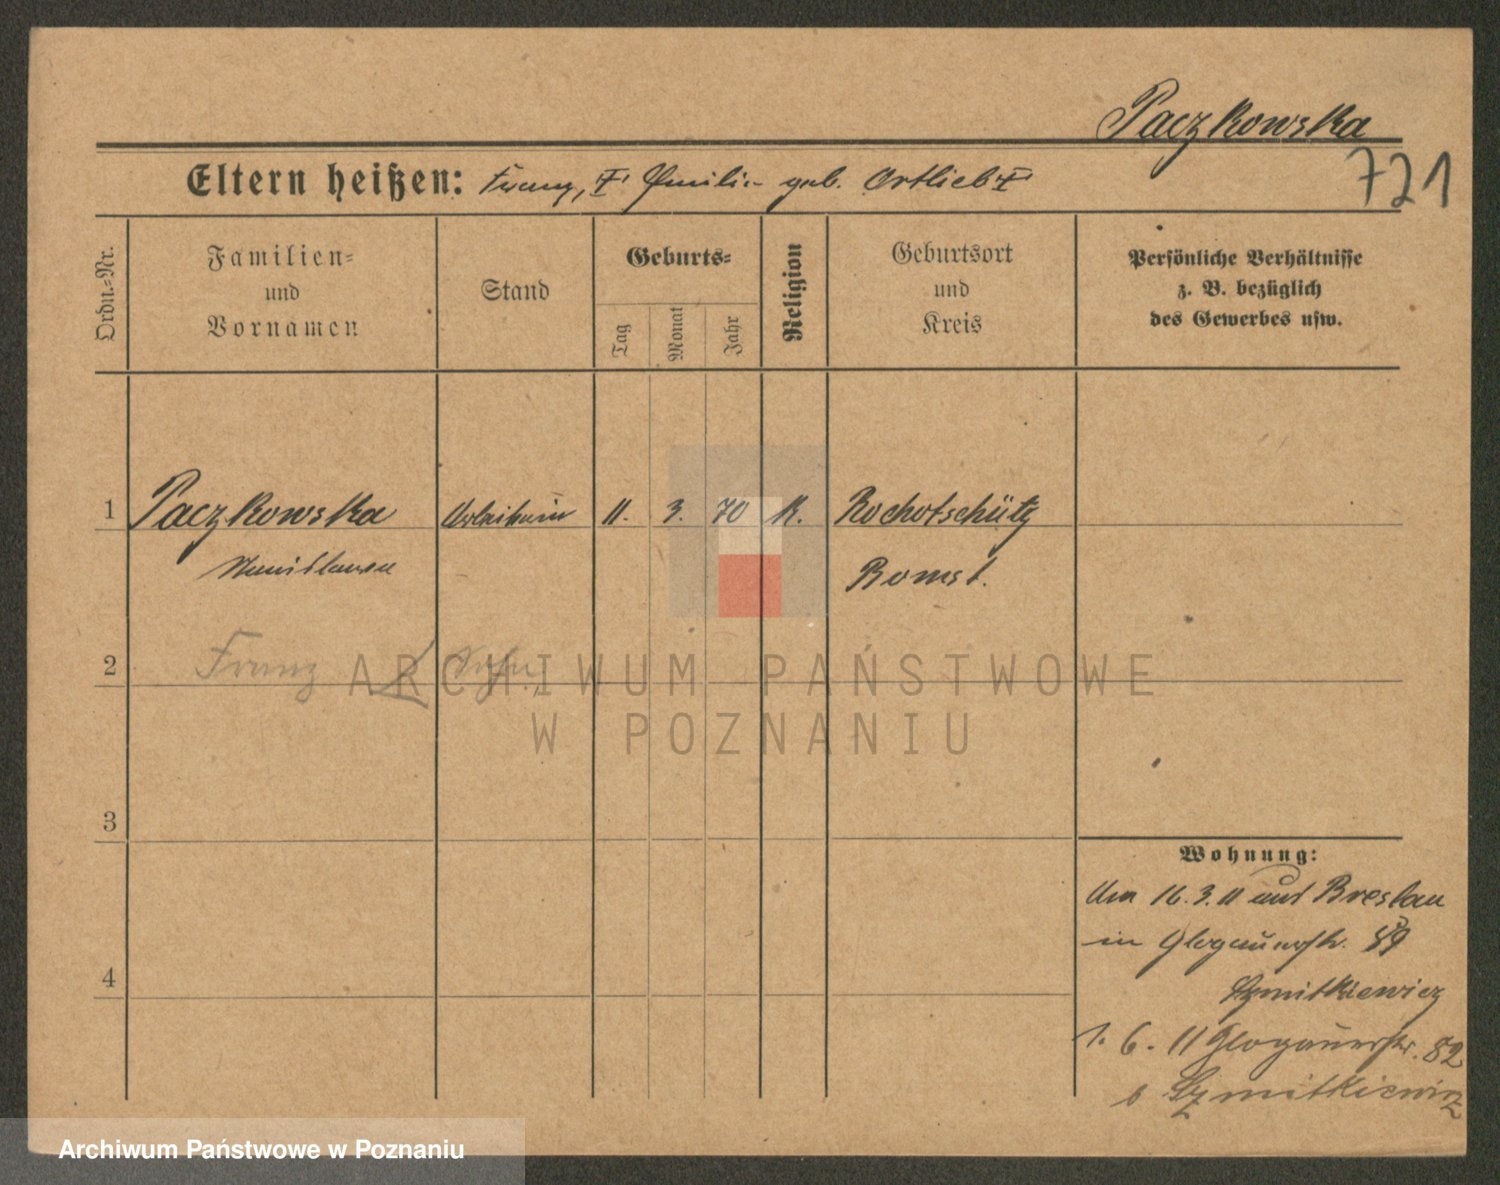 Paczkowska
721
Eltern heißen: Franz, † Emilie geb. Ortlieb †
Ordn.-Nr.
Familien-
und
Vornamen
Stand
Geburts-
Tag
Monat
Jahr
Religion
Geburtsort
und
Kreis
Persönliche Verhältnisse
z. B. bezüglich
des Gewerbes usw.
1 Paczkowska Arbeiterin 11. 3. 70 K. Rochotschütz
Stanislawa Bomst.
2 Franz
ARCHIWUM PAŃSTWOWE
W POZNANIU
3
Wohnung:
Am 16.3.11 aus Breslau
in Glogauerstr. 89
4
Szmitkiewicz
1. 6. 11 Glogauerstr. 82
b Szmitkiewicz
Archiwum Państwowe w Poznaniu